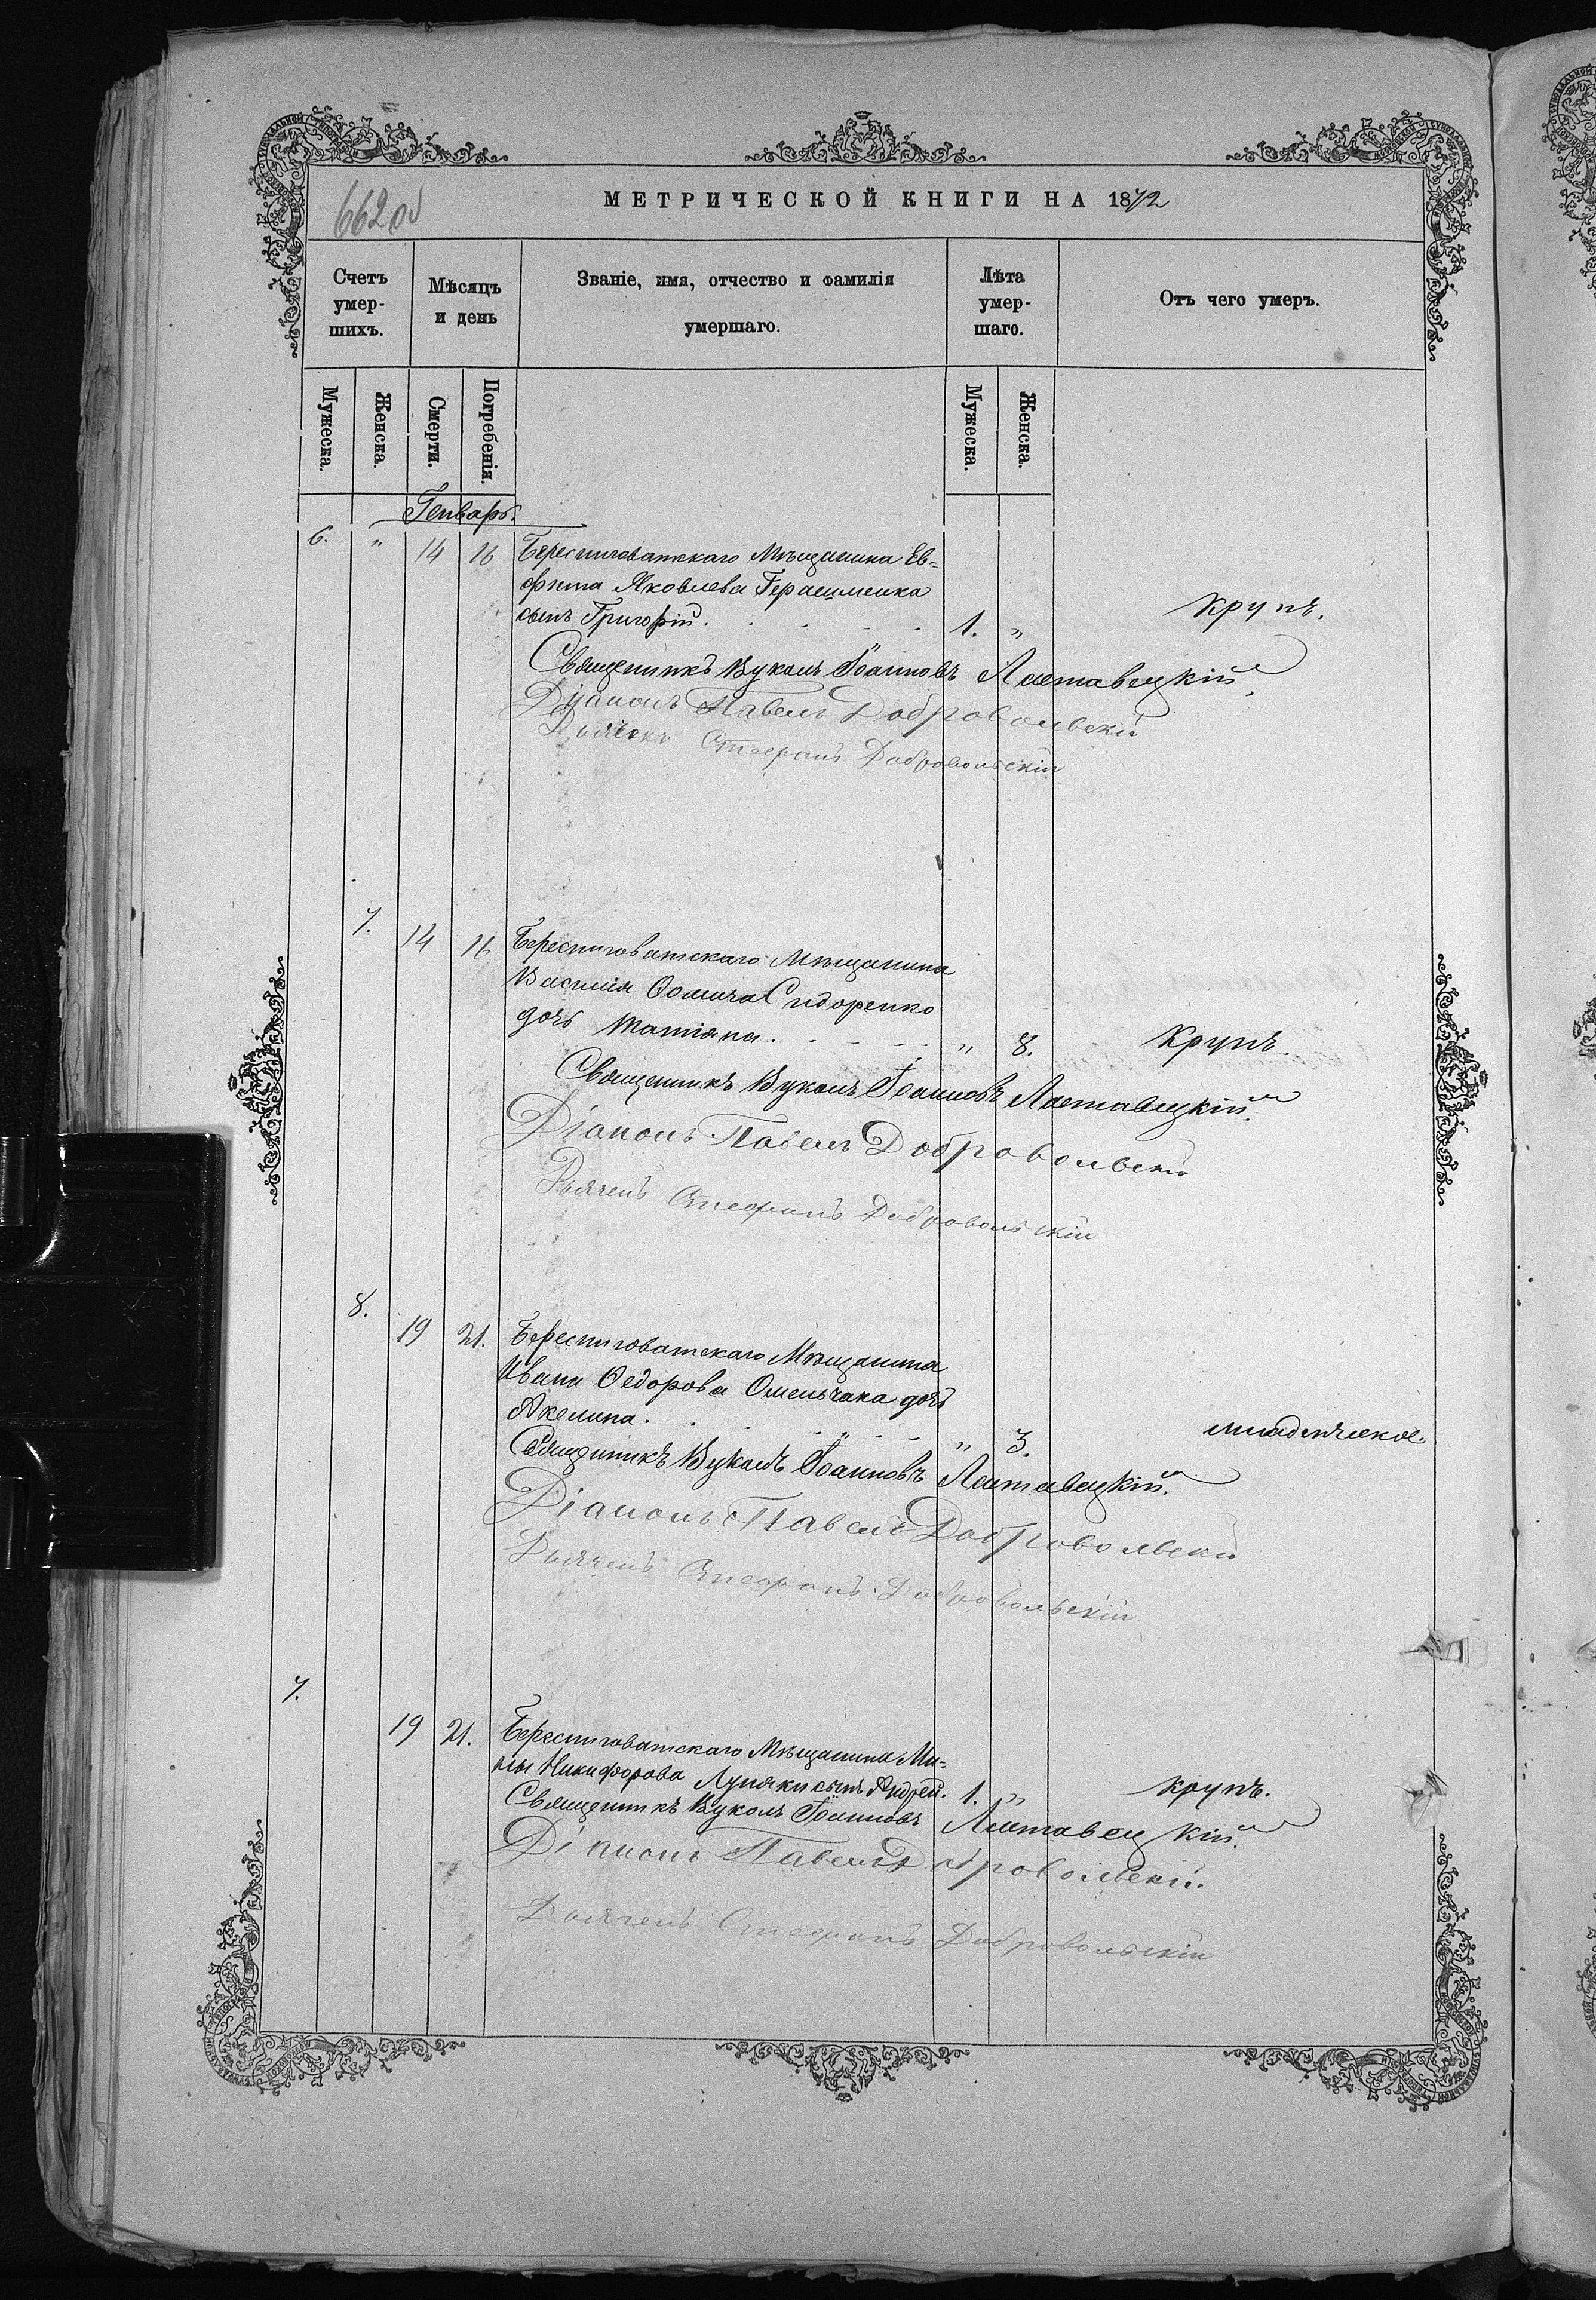 662об
МЕТРИЧЕСКОЙ КНИГИ НА 1872
Счетъ умер-шихъ.
Мѣсяцъ и день
Званіе, имя, отчество и фамилія умершаго.
Лѣта умер-шаго.
Отъ чего умеръ.
Мужеска.
Женска.
Смерти.
Погребенія.
Мужеска.
Женска.
Генварь.
6. " 14 16 Берестиговатскаго Мѣщанина Ев=
фима Яковлева Герасименка
сынъ Григорій. 1. " Крупъ.
Священникъ Вуколъ Іоанновъ Ластавецкій
Діаконъ Павелъ Добровольскій
Дьячекъ Стефанъ Добровольскій
7. 14 16 Берестиговатскаго Мѣщанина
Василія Ѳомича Сидоренко
дочь Татіяна. " 8. Крупъ.
Священникъ Вуколъ Іоанновъ Ластавецкій
Діаконъ Павелъ Добровольскій
Дьячекъ Стефанъ Добровольскій
8. 19 21. Берестиговатскаго Мѣщанина
Ивана Ѳедорова Омельчака дочь
Акелина. " 3. младенческое.
Священникъ Вуколъ Іоанновъ Ластавецкій.
Діаконъ Павелъ Добровольскій
Дьячекъ Стефанъ Добровольскій
7. 19 21. Берестиговатскаго Мѣщанина Ми=
ны Никифорова Лупяки сынъ Андрей. 1. " крупъ.
Священникъ Вуколъ Іоанновъ Ластавецкій.
Діаконъ Павелъ Добровольскій.
Дьячекъ Стефанъ Добровольскій